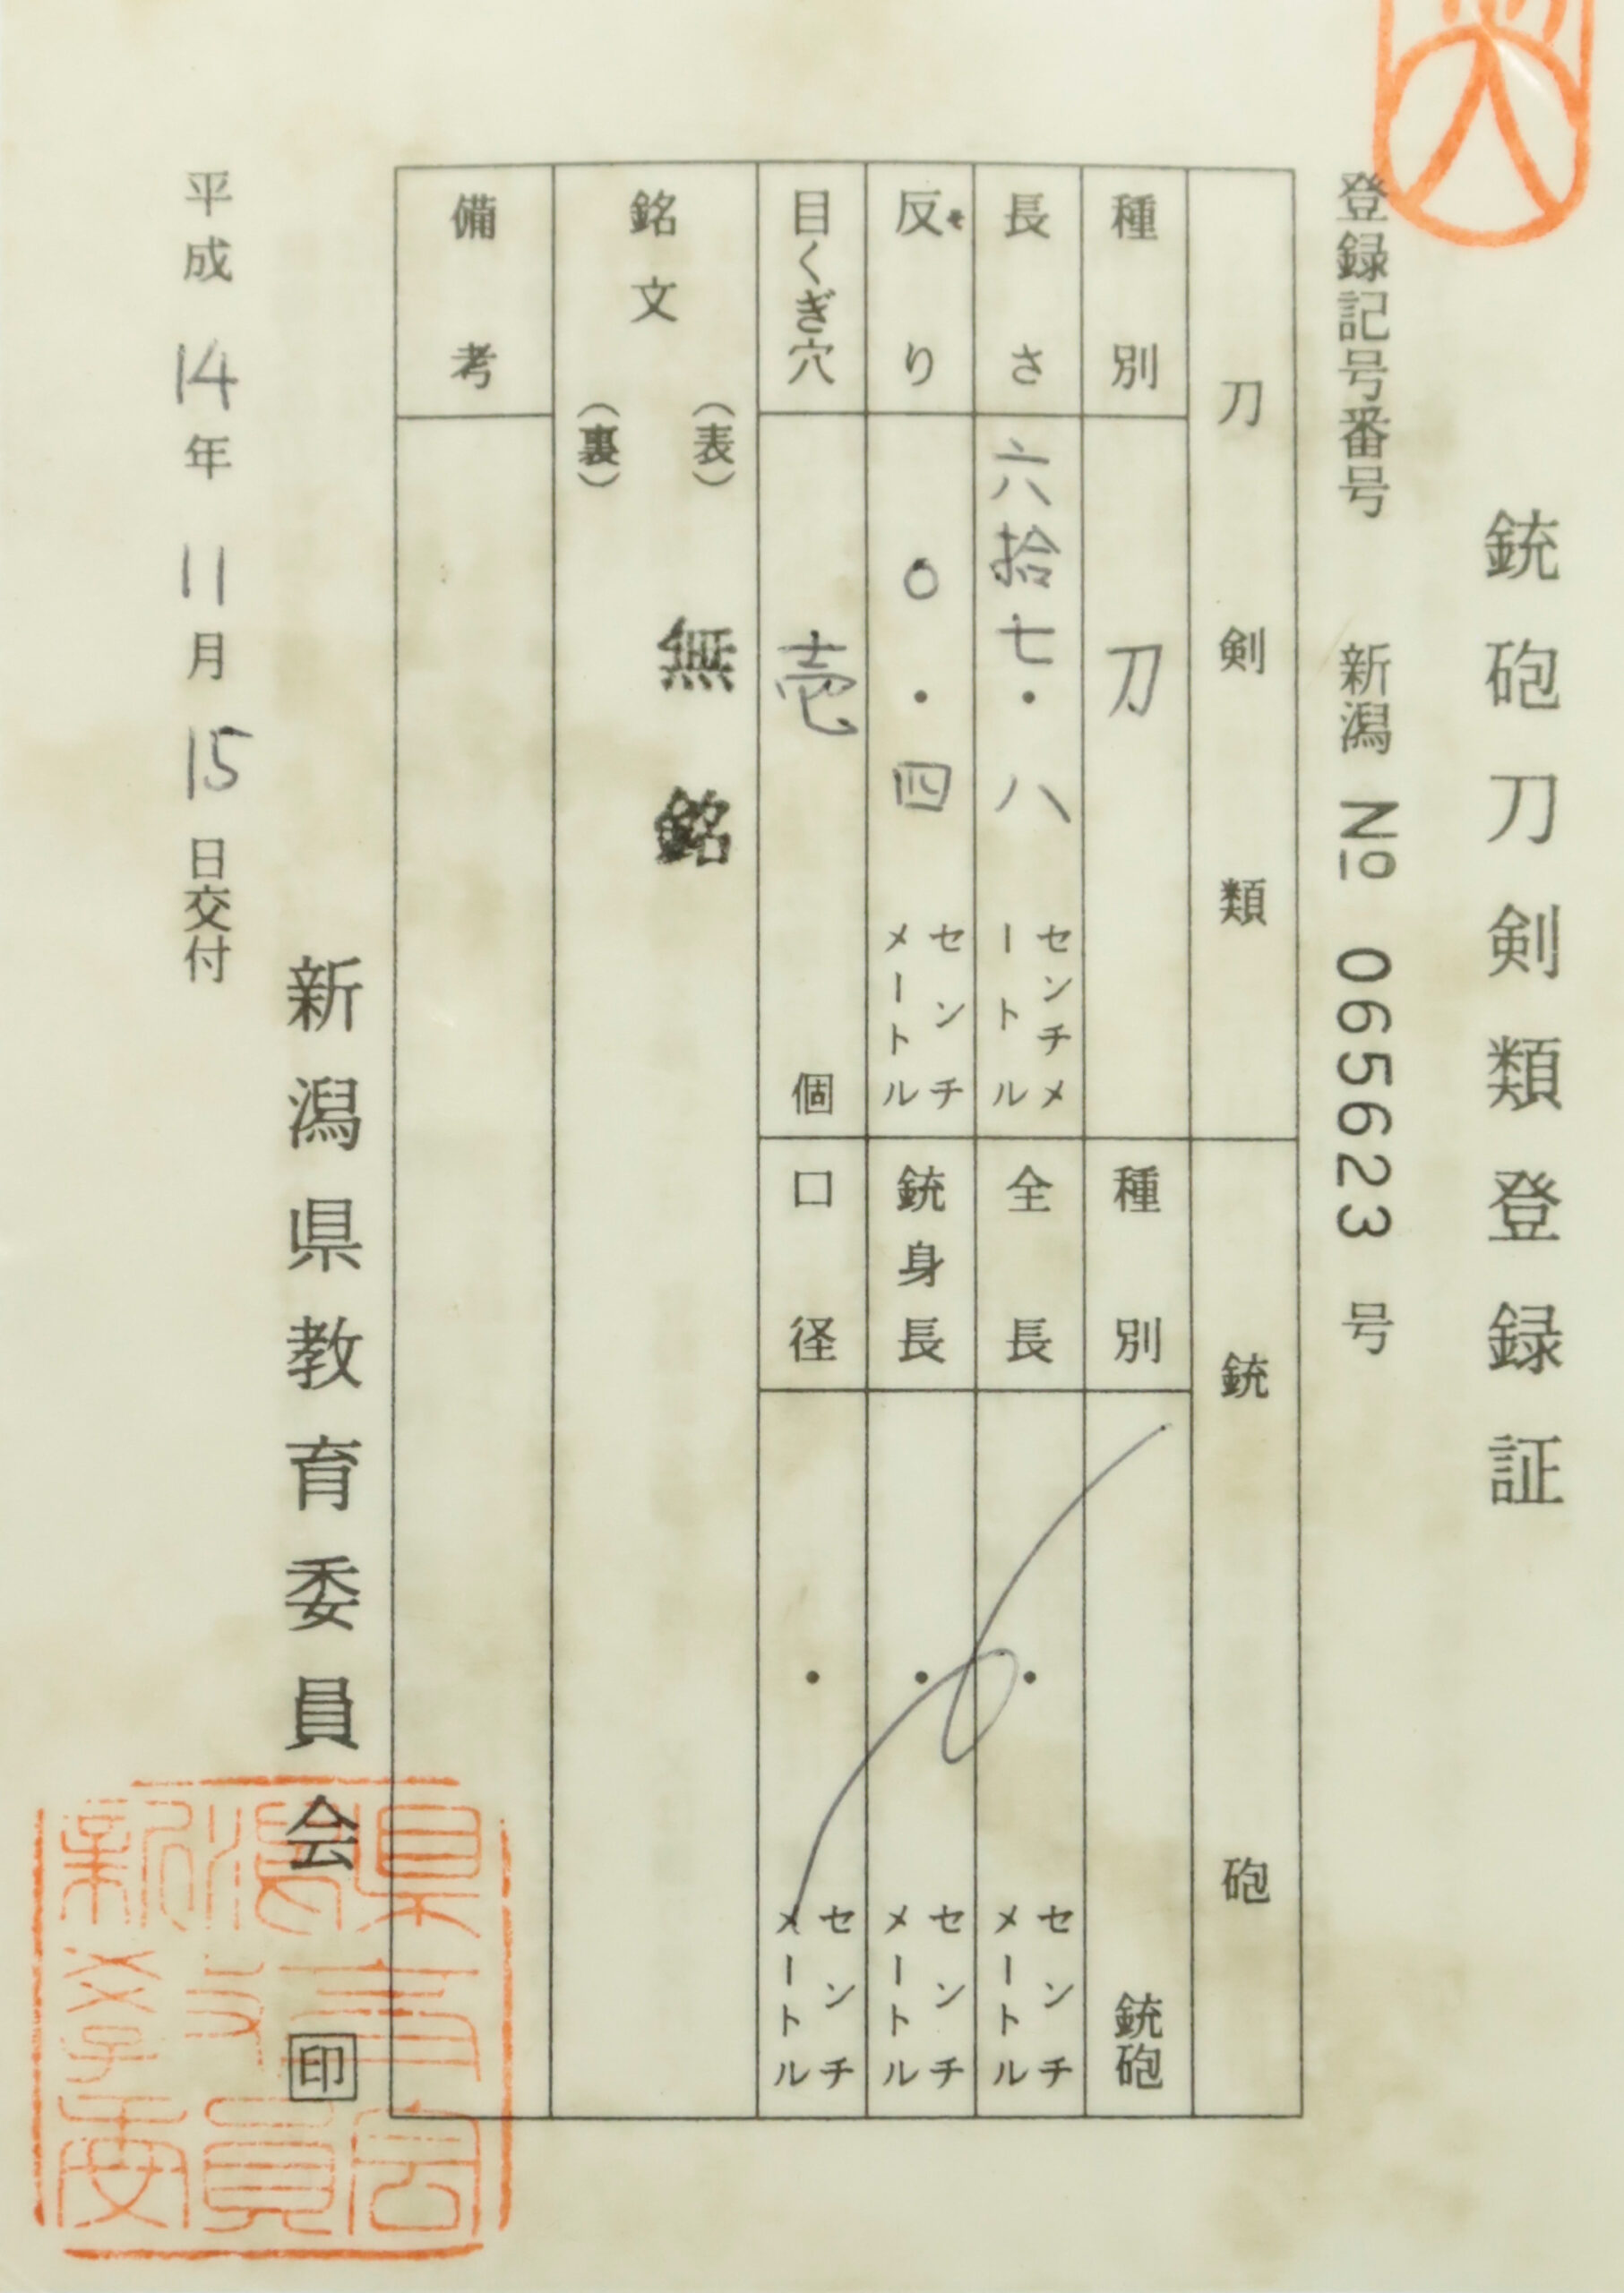 銃砲刀剣類登録証
登録記号番号 新潟 № 065623 号
刀剣類
種別 刀
長さ 六拾七・八 センチメートル
反り 〇・四 センチメートル
目くぎ穴 壱 個
銃砲
種別 銃砲
全長 ・ センチメートル
銃身長 ・ センチメートル
口径 ・ センチメートル
銘文
(表) 無銘
(裏)
備考
新潟県教育委員会 印
新潟県教育委員会
平成14年11月15日交付